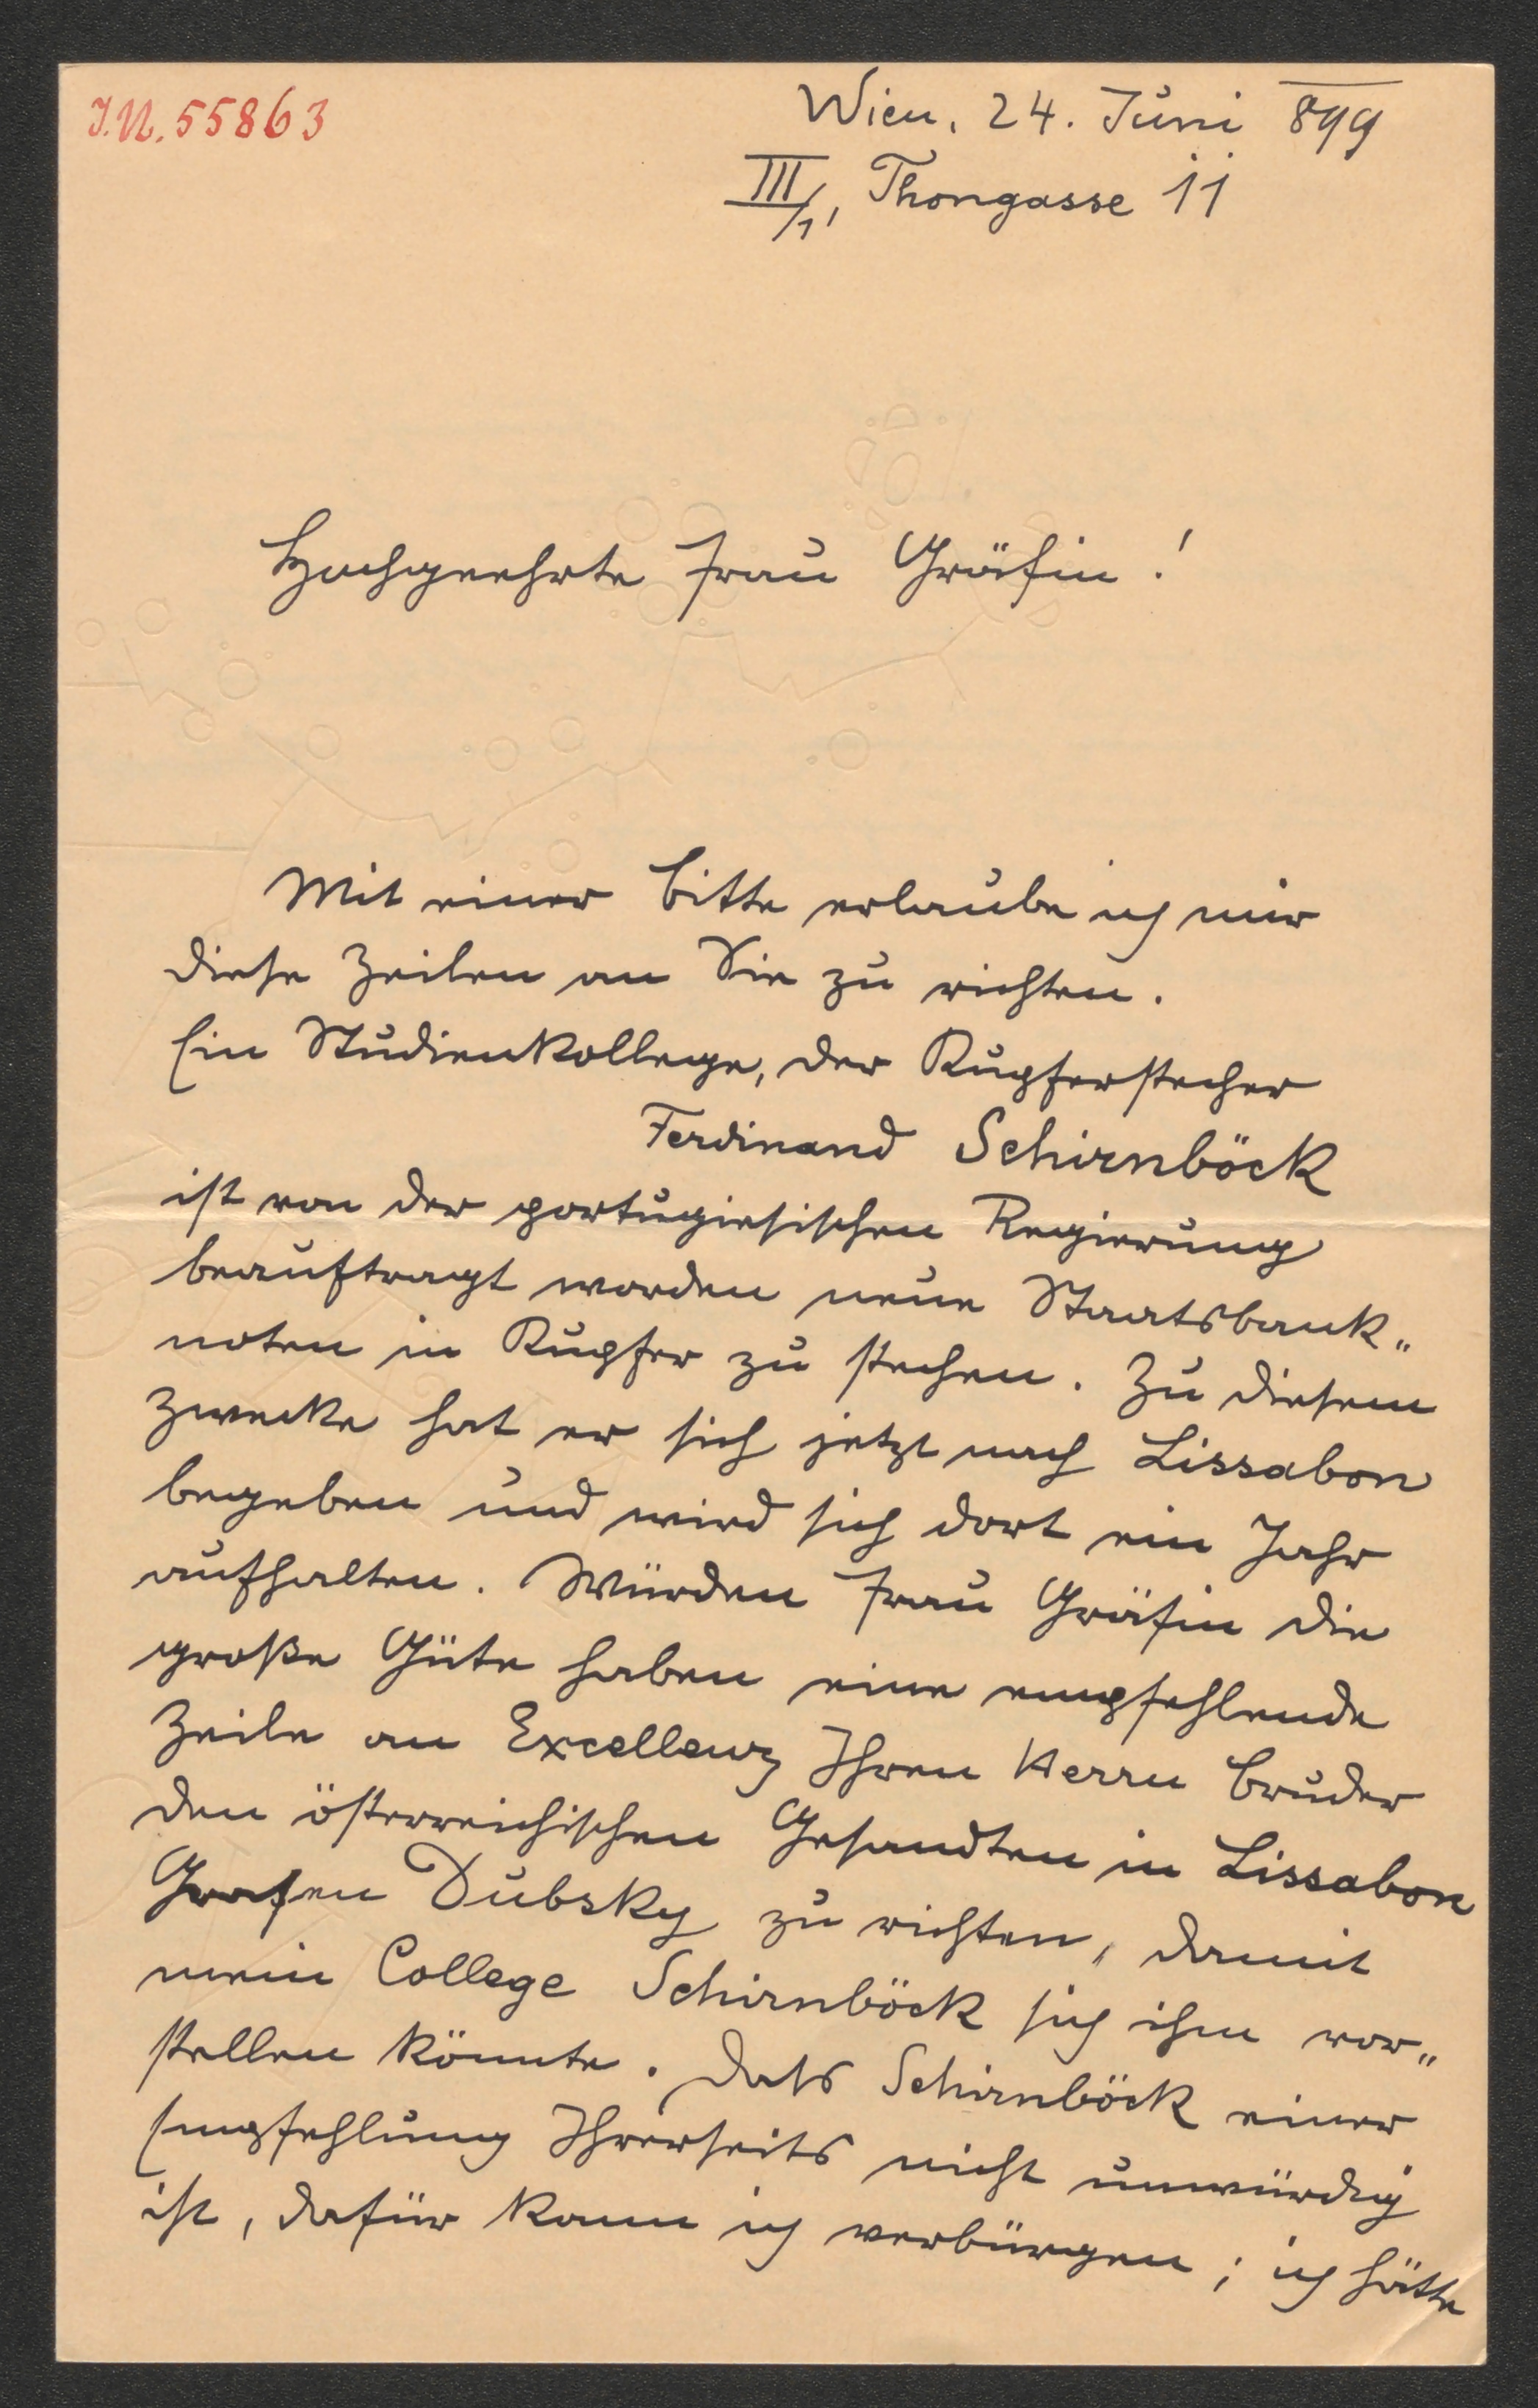 J.N. 55863
Wien, 24. Juni 899
III/1, Thongasse 11
Hochgeehrte Frau Gräfin!
Mit einer Bitte erlaube ich mir
diese Zeilen an Sie zu richten.
Ein Studienkollege, der Kupferstecher
Ferdinand Schirnböck
ist von der portugiesischen Regierung
beauftragt worden neue Staatsbank„
noten in Kupfer zu stechen. Zu diesem
Zwecke hat er sich jetzt nach Lissabon
begeben und wird sich dort ein Jahr
aufhalten. Würden Frau Gräfin die
große Güte haben eine empfehlende
Zeile an Excellenz Ihren Herrn Bruder
den österreichischen Gesandten in Lissabon
Grafen Dubsky zu richten, damit
mein College Schirnböck sich ihm vor„
stellen könnte. Dass Schirnböck einer
Empfehlung Ihrerseits nicht unwürdig
ist, dafür kann ich verbürgen; ich hätte